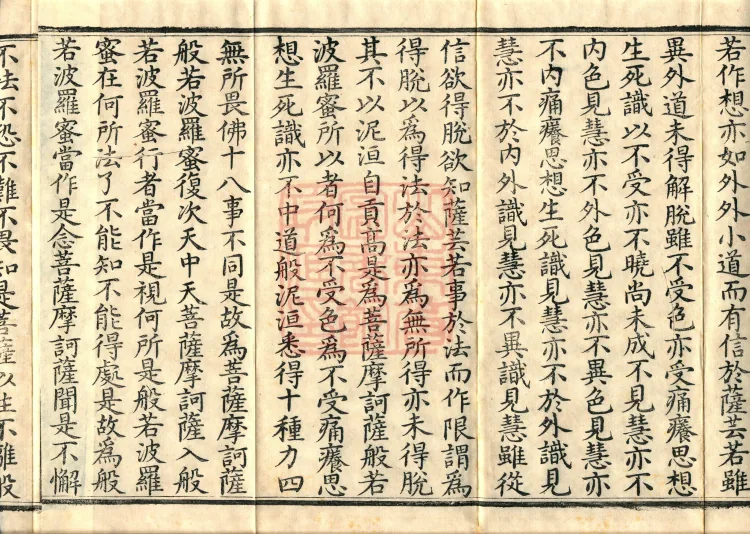 若作想亦如外外小道而有信於薩芸若雖
異外道未得解脫雖不受色亦受痛癢思想
生死識以不受亦不曉尚未成不見慧亦不
內色見慧亦不外色見慧亦不異色見慧亦
不內痛癢思想生死識見慧亦不於外識見
慧亦不於內外識見慧亦不異識見慧雖從
信欲得脫欲知薩芸若事於法而作限謂為
得脫以為得法於法亦為無所得亦未得脫
其不以泥洹自貢高是為菩薩摩訶薩般若
波羅蜜所以者何為不受色為不受痛癢思
想生死識亦不中道般泥洹悉得十種力四
無所畏佛十八事不同是故為菩薩摩訶薩
般若波羅蜜復次天中天菩薩摩訶薩入般
若波羅蜜行者當作是視何所是般若波羅
蜜在何所法了不能知不能得處是故為般
若波羅蜜當作是念菩薩摩訶薩聞是不懈
不怯不恐不難不畏知是菩薩以生不離般